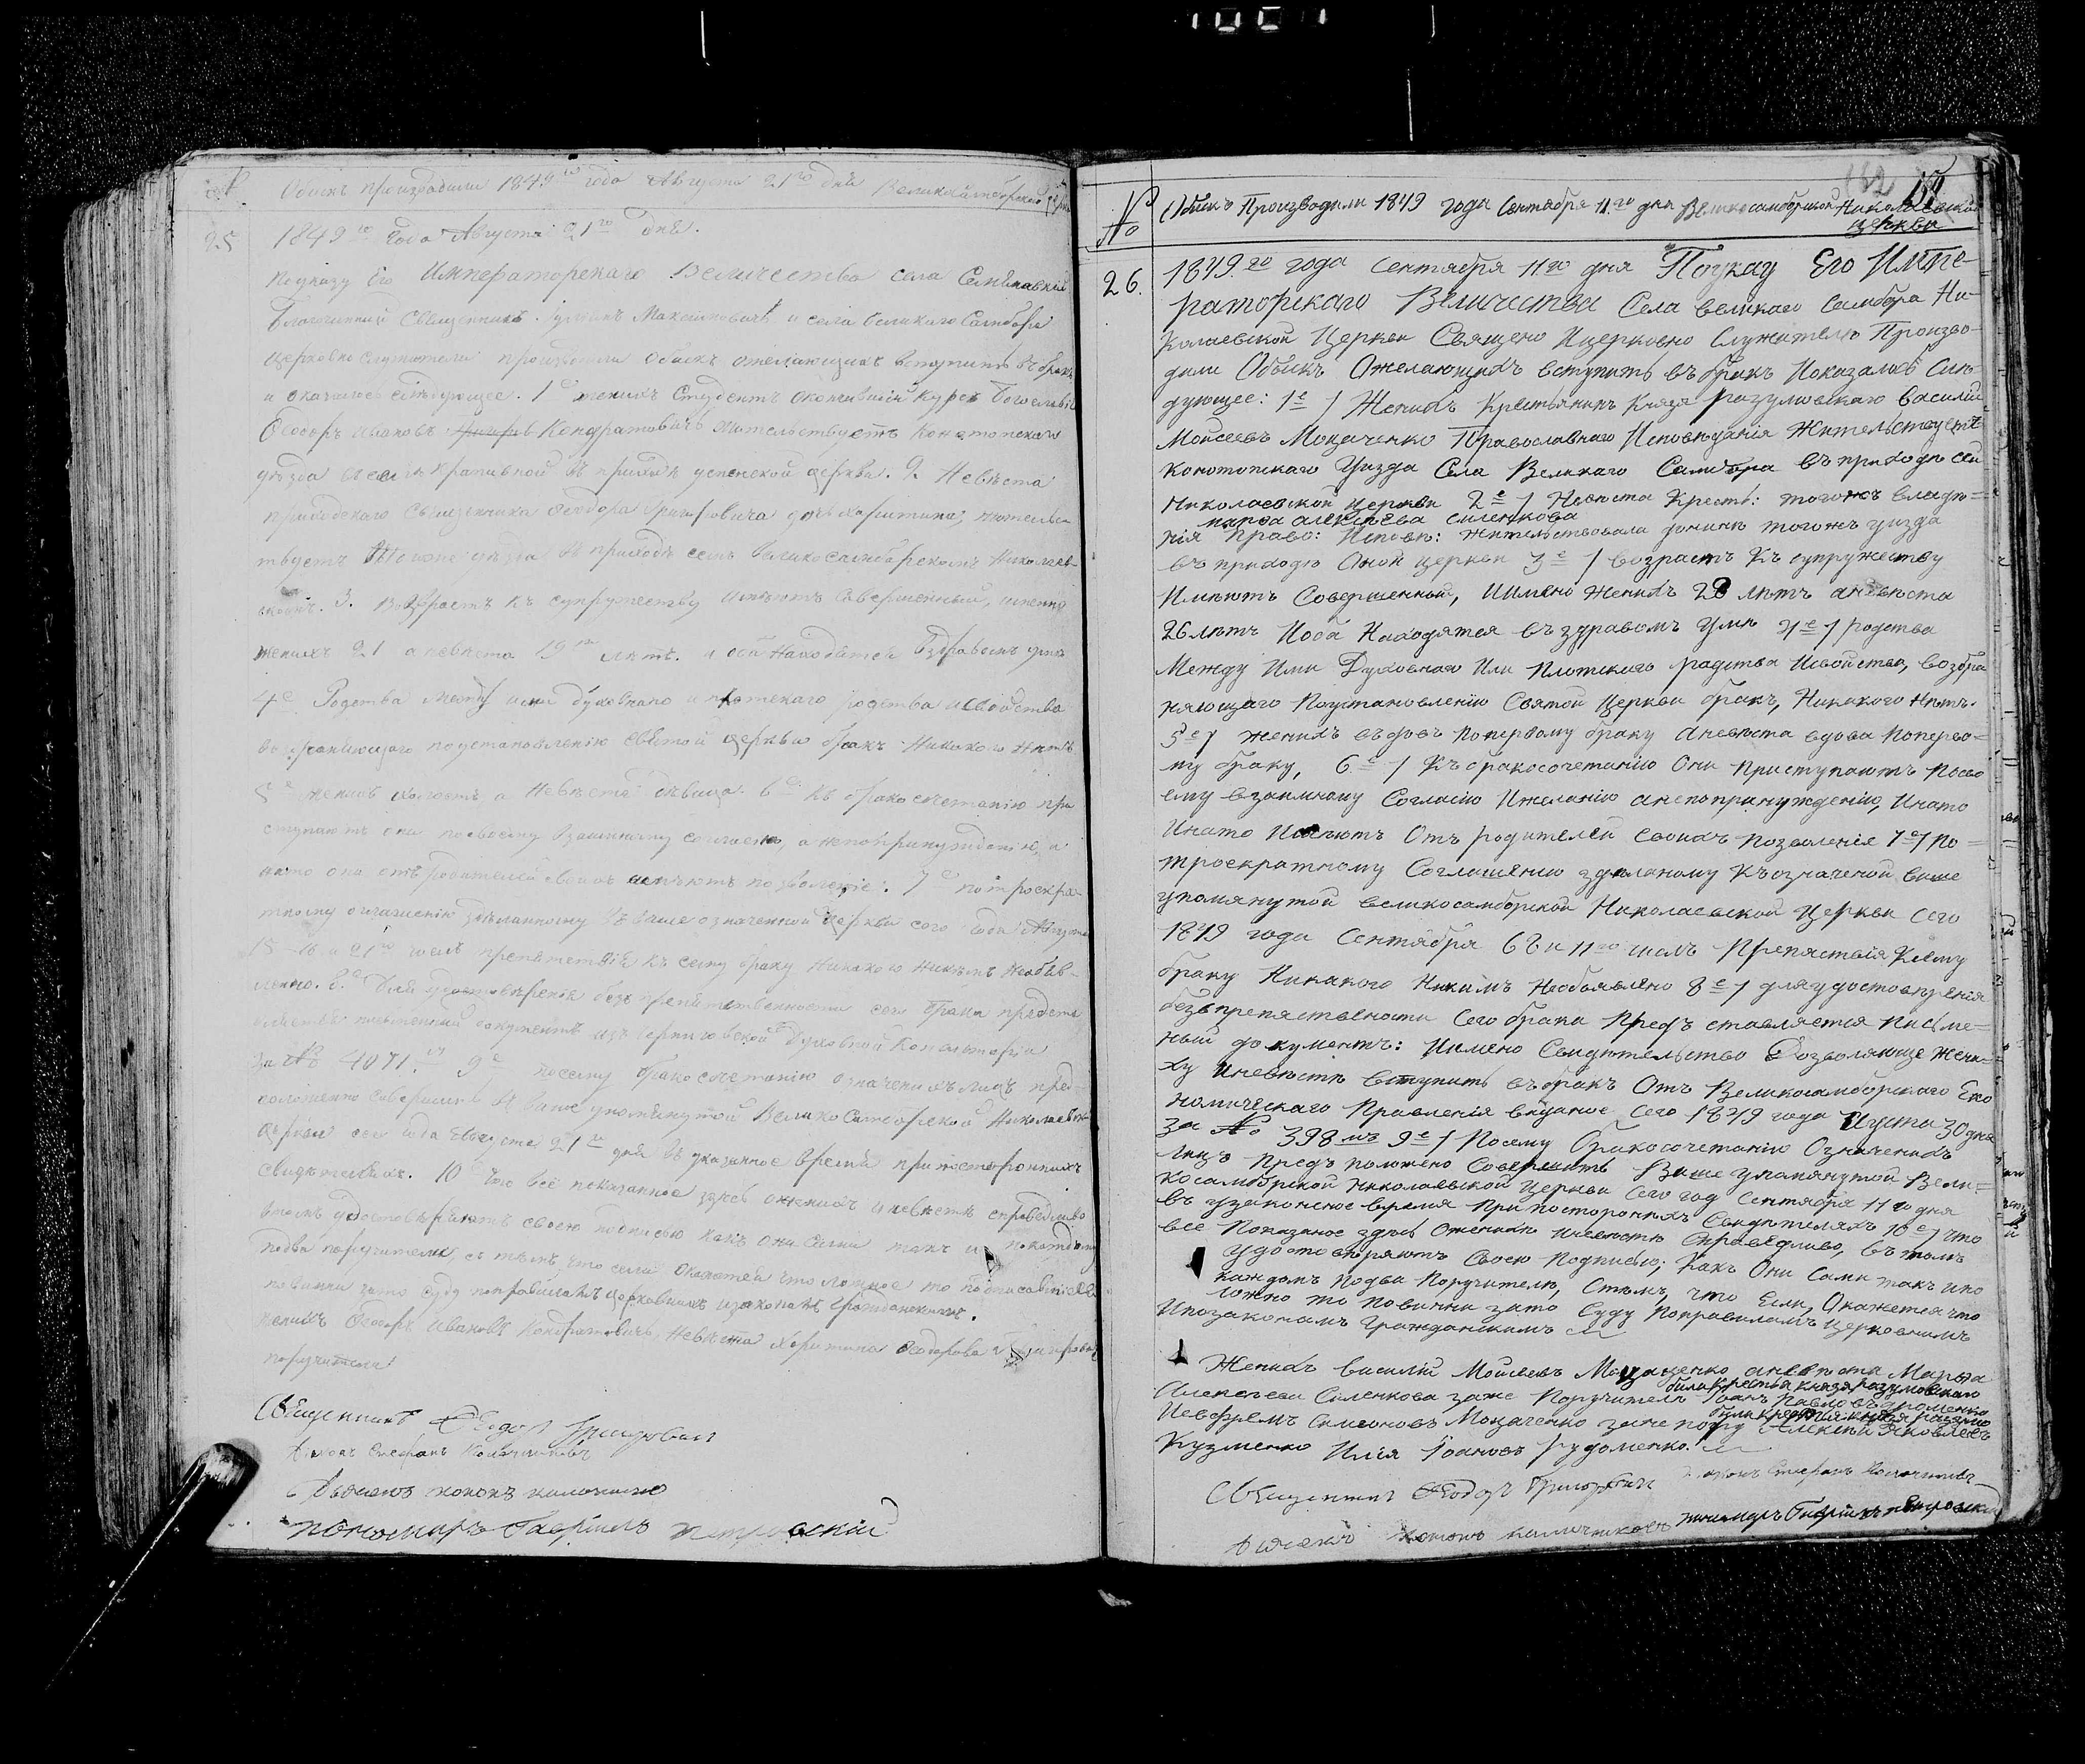 № Обыскъ производили 1849го года Августа 21го дня Великосамборской
25 1849го года Августа 21го дня.
По указу Его Императорскаго Величества села
Благочинный Священникъ Максимовичъ и села Великаго Самбора
церковно служители производили обыскъ о желающихъ вступить въ бракъ
и оказалось слѣдующее. 1е женихъ Студентъ окончившій курсъ Богословія
Феодоръ Ивановъ Кондратовичъ жительствуетъ Конотопскаго
уѣзда въ селѣ Крапивной въ приходѣ успенской церкви. 2. Невѣста
приходскаго Священника Феодора Григоровича дочь Харитина; жительс
твуетъ того же уѣзда въ приходѣ селѣ Великосамборскомъ Николаев-
ской. 3. Возрастъ къ супружеству имѣютъ совершенный, именно
женихъ 21 а невѣста 19ть лѣтъ. и оба находятся въ здравомъ умѣ
4е Родства между ими духовнаго и плотскаго родства и свойства
возбраняющаго по установленію святой церкви бракъ никакого нѣтъ
5е женихъ холостъ а невѣста дѣвица. 6е къ бракосочетанію при
ступаютъ они по своему взаимному согласію, а не по принужденію, и
на то они отъ родителей своихъ имѣютъ позволеніе. 7е по троекра-
тному оглашенію здѣланному въ выше означенной церкви сего года Августа
15 и 21го числъ препятствія къ сему браку никакого никѣмъ необъяв-
лено. 8е Для удостовѣренія безпрепятственности сего брака предста
вляетъ письменный документъ изъ Черниговской Духовной Консисторіи
за № 4071. 9е посему бракосочетанію означенихъ лицъ пред-
положенно совершить въ выше упомянутой Великосамборской Николаевской
церкви сего года Августа 21го дня въ указанное время при постороннихъ
свидѣтеляхъ. 10е что всё показанное здѣсь о женихѣ и невѣстѣ справедливо
въ томъ удостовѣряютъ своею подписью какъ они сами такъ и по каждому
по два поручителя, съ тѣмъ, что если окажется что ложное то подписавшіеся
повинни за то суду по правиламъ церковнимъ и законамъ гражданскимъ.
женихъ Феодоръ Ивановъ Кондратовичъ, Невѣста Харитина Феодорова Григоровичъ
поручители
Священникъ Феодоръ Григоровичъ
Діаконъ Стефанъ Колочниковъ
Дьячекъ кононъ
пономаръ Гавріилъ петровскій
№ Обыскъ Производили 1849 года Сентября 11.го дня Великосамборской Николаевской
церкви
26. 1849.го года Сентября 11го дня Поуказу Его Импе-
раторскаго Величества Села великаго Самбора Ни-
колаевской Церкви Священо Ицерковно Служителѣ Произво-
дили Обыскъ Ожелающихъ вступить въ бракъ Показалось Слѣ
дующее: 1е/ Женихъ Крестьянинъ Князя Разумовскаго Василій
Мойсеевъ Моцаченко Православнаго Исповѣданія Жительствуетъ
Конотопскаго Уѣзда Села Великаго Самбора въ приходѣ сей
Николаевской церкви 2е/ Невѣста Крестъ: тогожъ владѣ=
марѳа алексѣева силенкова
нія Право: Исповѣ: жительствовала донинѣ тогожъ уѣзда
въ приходѣ Оной церкви 3е/ возрастъ Къ супружеству
Имѣютъ Совершенный, Имѣно Женихъ 28 лѣтъ аневѣста
26 лѣтъ Иоба Находятся въ здравомъ Умѣ 4е/ родства
Между Ими Духовнаго Или Плотскаго радства Исвойства, возбра
няющаго Поустановленію Святой Церкви бракъ, Никакого Нѣтъ.
5е/ женихъ въдовъ поперъвому браку Аневѣста вдова Поперво=
му браку, 6е/ Къ бракосочетанію Они Приступаютъ Посво
ему взаимному Согласію Ижеланію анепопринужденію, Инато
Инато Имѣютъ Отъ родителей своихъ позволенія 7е/ По=
троекратному Соглашенію здѣланому Къозначеной выше
упомянутой великосамборской Николаевской Церкви Сего
1849 года Сентября 6 8 и 11го числъ Препяствія Ксему
браку Никакого Никимъ Необьявлено 8е/ дляудостовѣренія
безъпрепяствености Сего брака Предъставляется Письме=
ный документъ: Имѣно Свидѣтельство Дозволяюще Жени=
ху Иневѣстѣ вступить въбракъ Отъ Великосамборскаго Еко
номическаго Правленія виданое Сего 1849 года Агуста 30 дня
за № 398мъ 9е/ Посему Бракосочетанію Означенихъ
лицъ Предъположено Совершить Више упамянутой Вели=
косамборской Николаевской Церкви Сего год Сентября 11го дня
въ узаконеное время Припостороннихъ Свидѣтеляхъ 10е/ что
все Показаное здѣсь Оженихѣ Иневѣстѣ Справедливо, Вътомъ
Удостовѣряютъ Своею Подписью; Какъ Они Сами такъ ипо
каждомъ подва Поручителю, Стѣмъ, что Если, Окажется что
ложно то повинни зато Суду Поправиламъ Церковнимъ
Ипозаконамъ Гражданскимъ
Женихъ Василій Мойсеевъ Моцаченко аневѣста Марѳа
Алексѣева Силенкова
были Крестья князя разумовскаго
Иевфремъ Симеоновъ Моцаченко
Кузменко Илія Іоановъ Рудоменко.
Священникъ Феодоръ Григоровичъ Діаконъ Стефанъ Колочниковъ
Дячекъ кононъ колочниковъ пономаръ Гавріилъ петровскій